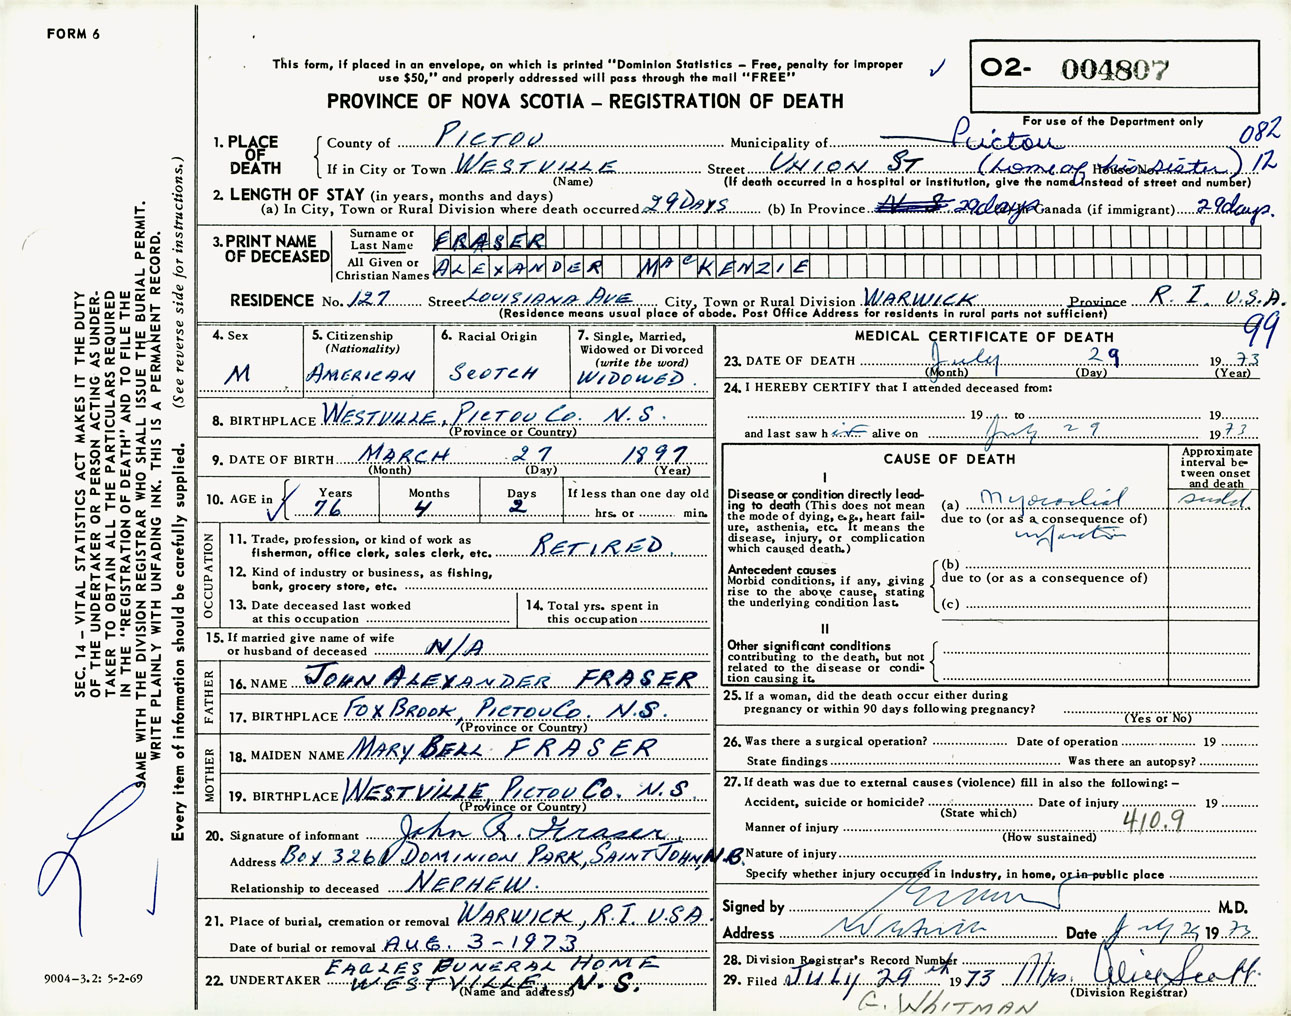 FORM 6
This form, if placed in an envelope, on which is printed "Dominion Statistics – Free, penalty for improper
use $50," and properly addressed will pass through the mail "FREE"
PROVINCE OF NOVA SCOTIA – REGISTRATION OF DEATH
O2- 004807
For use of the Department only
082
12
1. PLACE OF DEATH
County of PICTOU Municipality of Pictou
If in City or Town WESTVILLE Street UNION ST (home of his sister) House No.
(Name) (If death occurred in a hospital or institution, give the name instead of street and number)
2. LENGTH OF STAY (in years, months and days)
(a) In City, Town or Rural Division where death occurred 29 DAYS (b) In Province N S 29 days Canada (if immigrant) 29 days.
3. PRINT NAME OF DECEASED
Surname or Last Name FRASER
All Given or Christian Names ALEXANDER MacKENZIE
RESIDENCE No. 127 Street LOUISIANA AVE City, Town or Rural Division WARWICK Province R. I. U.S.A.
(Residence means usual place of abode. Post Office Address for residents in rural parts not sufficient)
99
4. Sex
M
5. Citizenship
(Nationality)
AMERICAN
6. Racial Origin
SCOTCH
7. Single, Married,
Widowed or Divorced
(write the word)
WIDOWED
8. BIRTHPLACE WESTVILLE, PICTOU CO. N.S.
(Province or Country)
9. DATE OF BIRTH MARCH 27 1897
(Month) (Day) (Year)
10. AGE in
Years 76
Months 4
Days 2
If less than one day old
hrs. or min.
OCCUPATION
11. Trade, profession, or kind of work as
fisherman, office clerk, sales clerk, etc. RETIRED.
12. Kind of industry or business, as fishing,
bank, grocery store, etc.
13. Date deceased last worked
at this occupation
14. Total yrs. spent in
this occupation
15. If married give name of wife
or husband of deceased N/A
FATHER
16. NAME JOHN ALEXANDER FRASER
17. BIRTHPLACE FOX BROOK, PICTOU CO. N.S.
(Province or Country)
MOTHER
18. MAIDEN NAME MARY BELL FRASER
19. BIRTHPLACE WESTVILLE, PICTOU CO. N.S
(Province or Country)
20. Signature of informant John R. Fraser
Address BOX 3261 DOMINION PARK, SAINT JOHN, N.B.
Relationship to deceased NEPHEW.
21. Place of burial, cremation or removal WARWICK, R.I. U.S.A.
Date of burial or removal AUG. 3-1973
22. UNDERTAKER EAGLES FUNERAL HOME
WESTVILLE, N.S.
(Name and address)
MEDICAL CERTIFICATE OF DEATH
23. DATE OF DEATH July 29 1973
(Month) (Day) (Year)
24. I HEREBY CERTIFY that I attended deceased from:
19 to 19
and last saw him alive on July 29 1973
CAUSE OF DEATH
Approximate interval between onset and death
I
Disease or condition directly lead-
ing to death (This does not mean
the mode of dying, e.g., heart fail-
ure, asthenia, etc. It means the
disease, injury, or complication
which caused death.)
(a) Myocardial
due to (or as a consequence of)
infarction
sudd
Antecedent causes
Morbid conditions, if any, giving
rise to the above cause, stating
the underlying condition last.
(b)
due to (or as a consequence of)
(c)
II
Other significant conditions
contributing to the death, but not
related to the disease or condi-
tion causing it.
25. If a woman, did the death occur either during
pregnancy or within 90 days following pregnancy?
(Yes or No)
26. Was there a surgical operation? Date of operation 19
State findings Was there an autopsy?
27. If death was due to external causes (violence) fill in also the following: –
Accident, suicide or homicide? Date of injury 19
(State which)
Manner of injury 410.9
(How sustained)
Nature of injury
Specify whether injury occurred in industry, in home, or in public place
Signed by M.D.
Address Westville Date July 29 1973
28. Division Registrar's Record Number
29. Filed JULY 29th 1973 Mrs. Alice Scott
(Division Registrar)
G. WHITMAN
SEC. 14 – VITAL STATISTICS ACT MAKES IT THE DUTY
OF THE UNDERTAKER OR PERSON ACTING AS UNDER-
TAKER TO OBTAIN ALL THE PARTICULARS REQUIRED
IN THE "REGISTRATION OF DEATH" AND TO FILE THE
SAME WITH THE DIVISION REGISTRAR WHO SHALL ISSUE THE BURIAL PERMIT.
WRITE PLAINLY WITH UNFADING INK. THIS IS A PERMANENT RECORD.
Every item of information should be carefully supplied. (See reverse side for instructions.)
9004–3.2: 5-2-69